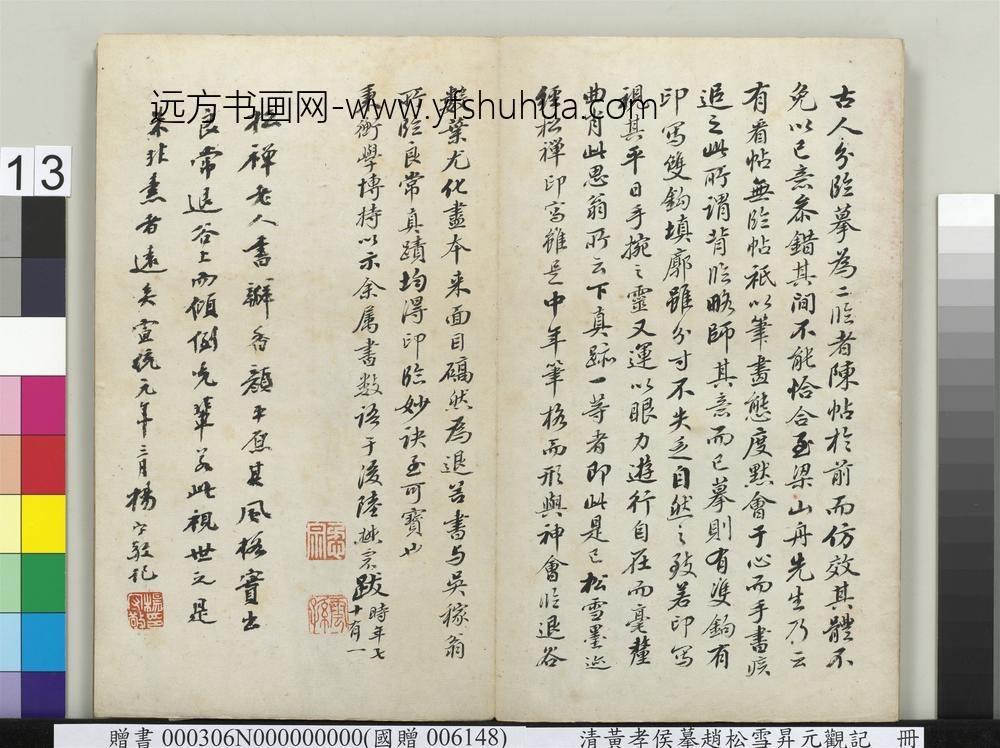 古人分臨摹為二臨者陳帖於前而仿效其體不
免以己意參錯其間不能恰合至梁山舟先生乃云
有看帖無臨帖祇以筆畫態度默會于心而手書疾
追之此所謂背臨略師其意而已摹則有雙鉤有
印寫雙鉤填廓雖分寸不失乏自然之致若印寫
視其平日手捥之靈又運以眼力遊行自在而毫釐
典肖此思翁所云下真跡一等者即此是已松雪墨迹
經松禪印寫雖是中年筆格而形與神會臨退谷
數葉尤化盡本来面目礄然為退谷書与吳稼翁
所臨良常真蹟均得印臨妙訣至可寶也
秉衡學博持以示余属書数语于后陸懋宗跋時年七
十有一
松禪老人書瓣香顔平原其風格實出
良常退谷上而傾倒先輩若此視世之是
末非素者遠矣宣統元年三月楊守敬記
远方书画网-www.yfshuhua.com
13
贈書 000306N000000000(國贈 006148)
清黃孝侯摹趙松雪昇元觀記 冊